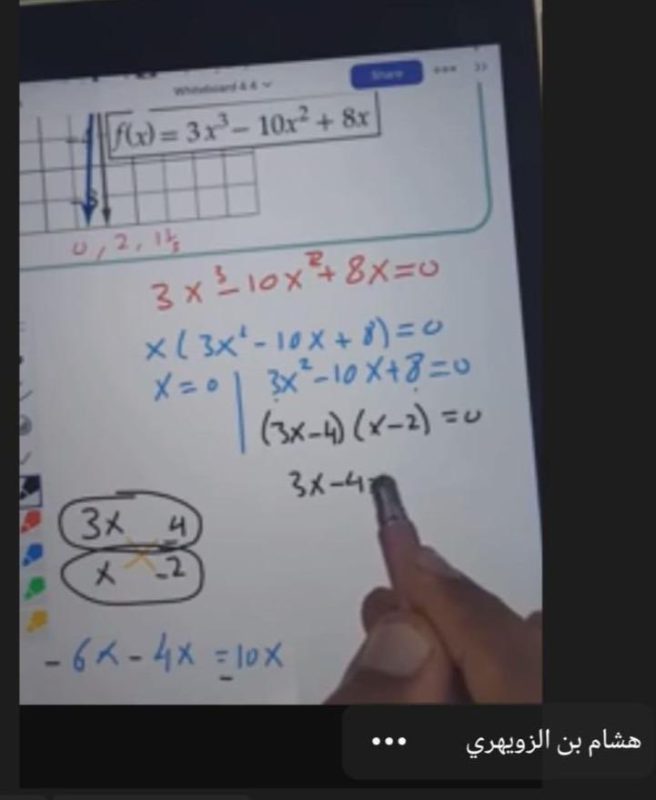 Whiteboard 4.4
Share
f(x) = 3x³ − 10x² + 8x
0, 2, 1⅓
3x³ − 10x² + 8x = 0
x(3x² − 10x + 8) = 0
x = 0 | 3x² − 10x + 8 = 0
(3x − 4)(x − 2) = 0
3x − 4 =
3x −4
x −2
−6x − 4x = −10x
هشام بن الزويهري